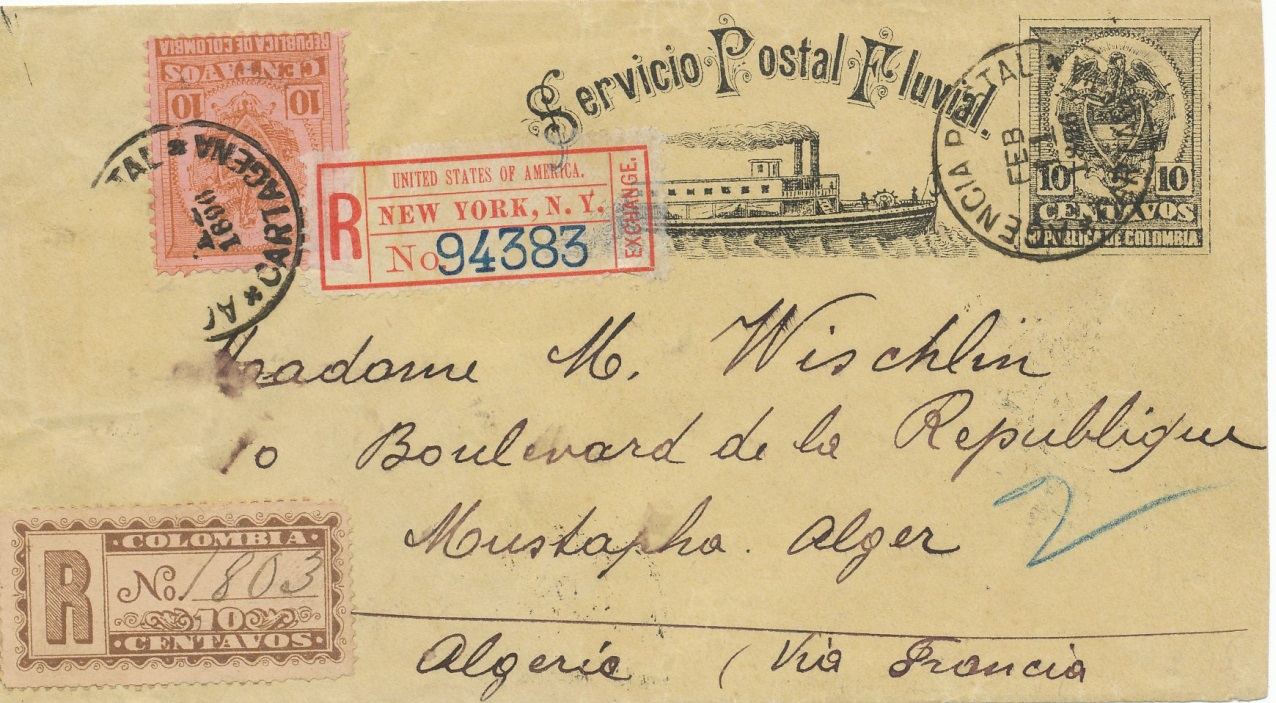 REPUBLICA DE COLOMBIA
CENTAVOS
10 10
TAL * CARTAGENA * AG
4
1896
Servicio Postal Fluvial.
AGENCIA POSTAL *
FEB
4
10 10
CENTAVOS
REPUBLICA DE COLOMBIA
R
UNITED STATES OF AMERICA.
NEW YORK, N. Y.
No 94383
EXCHANGE.
Madame M. Wischlin
10 Boulevard de la Republique
Mustapha. Alger
Algerie (Via Francia
2
R
COLOMBIA
No. 1803
10
CENTAVOS